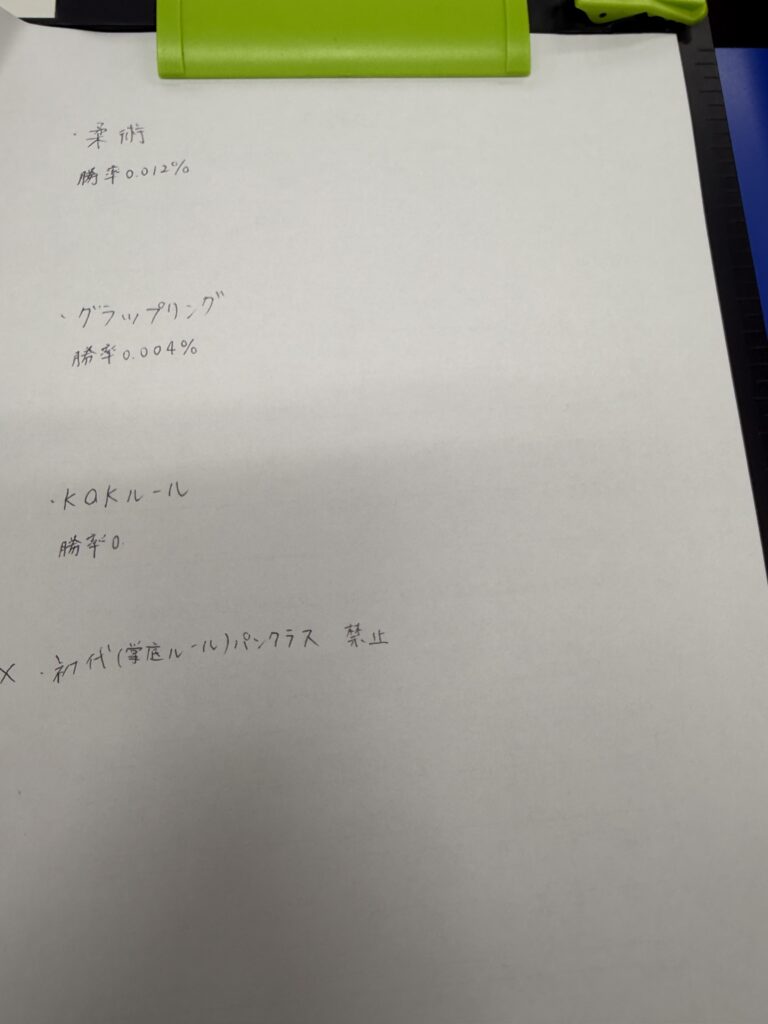 ・柔術
勝率0.012%
・グラップリング
勝率0.004%
・KOKルール
勝率0.
× ・初代(掌底ルール)パンクラス 禁止